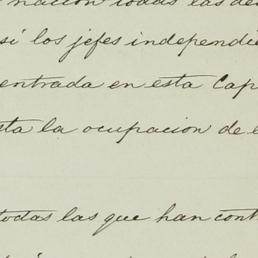 nacion todas las de
si los jefes independie
entrada en esta Cap
sta la ocupacion de e
todas las que han cont